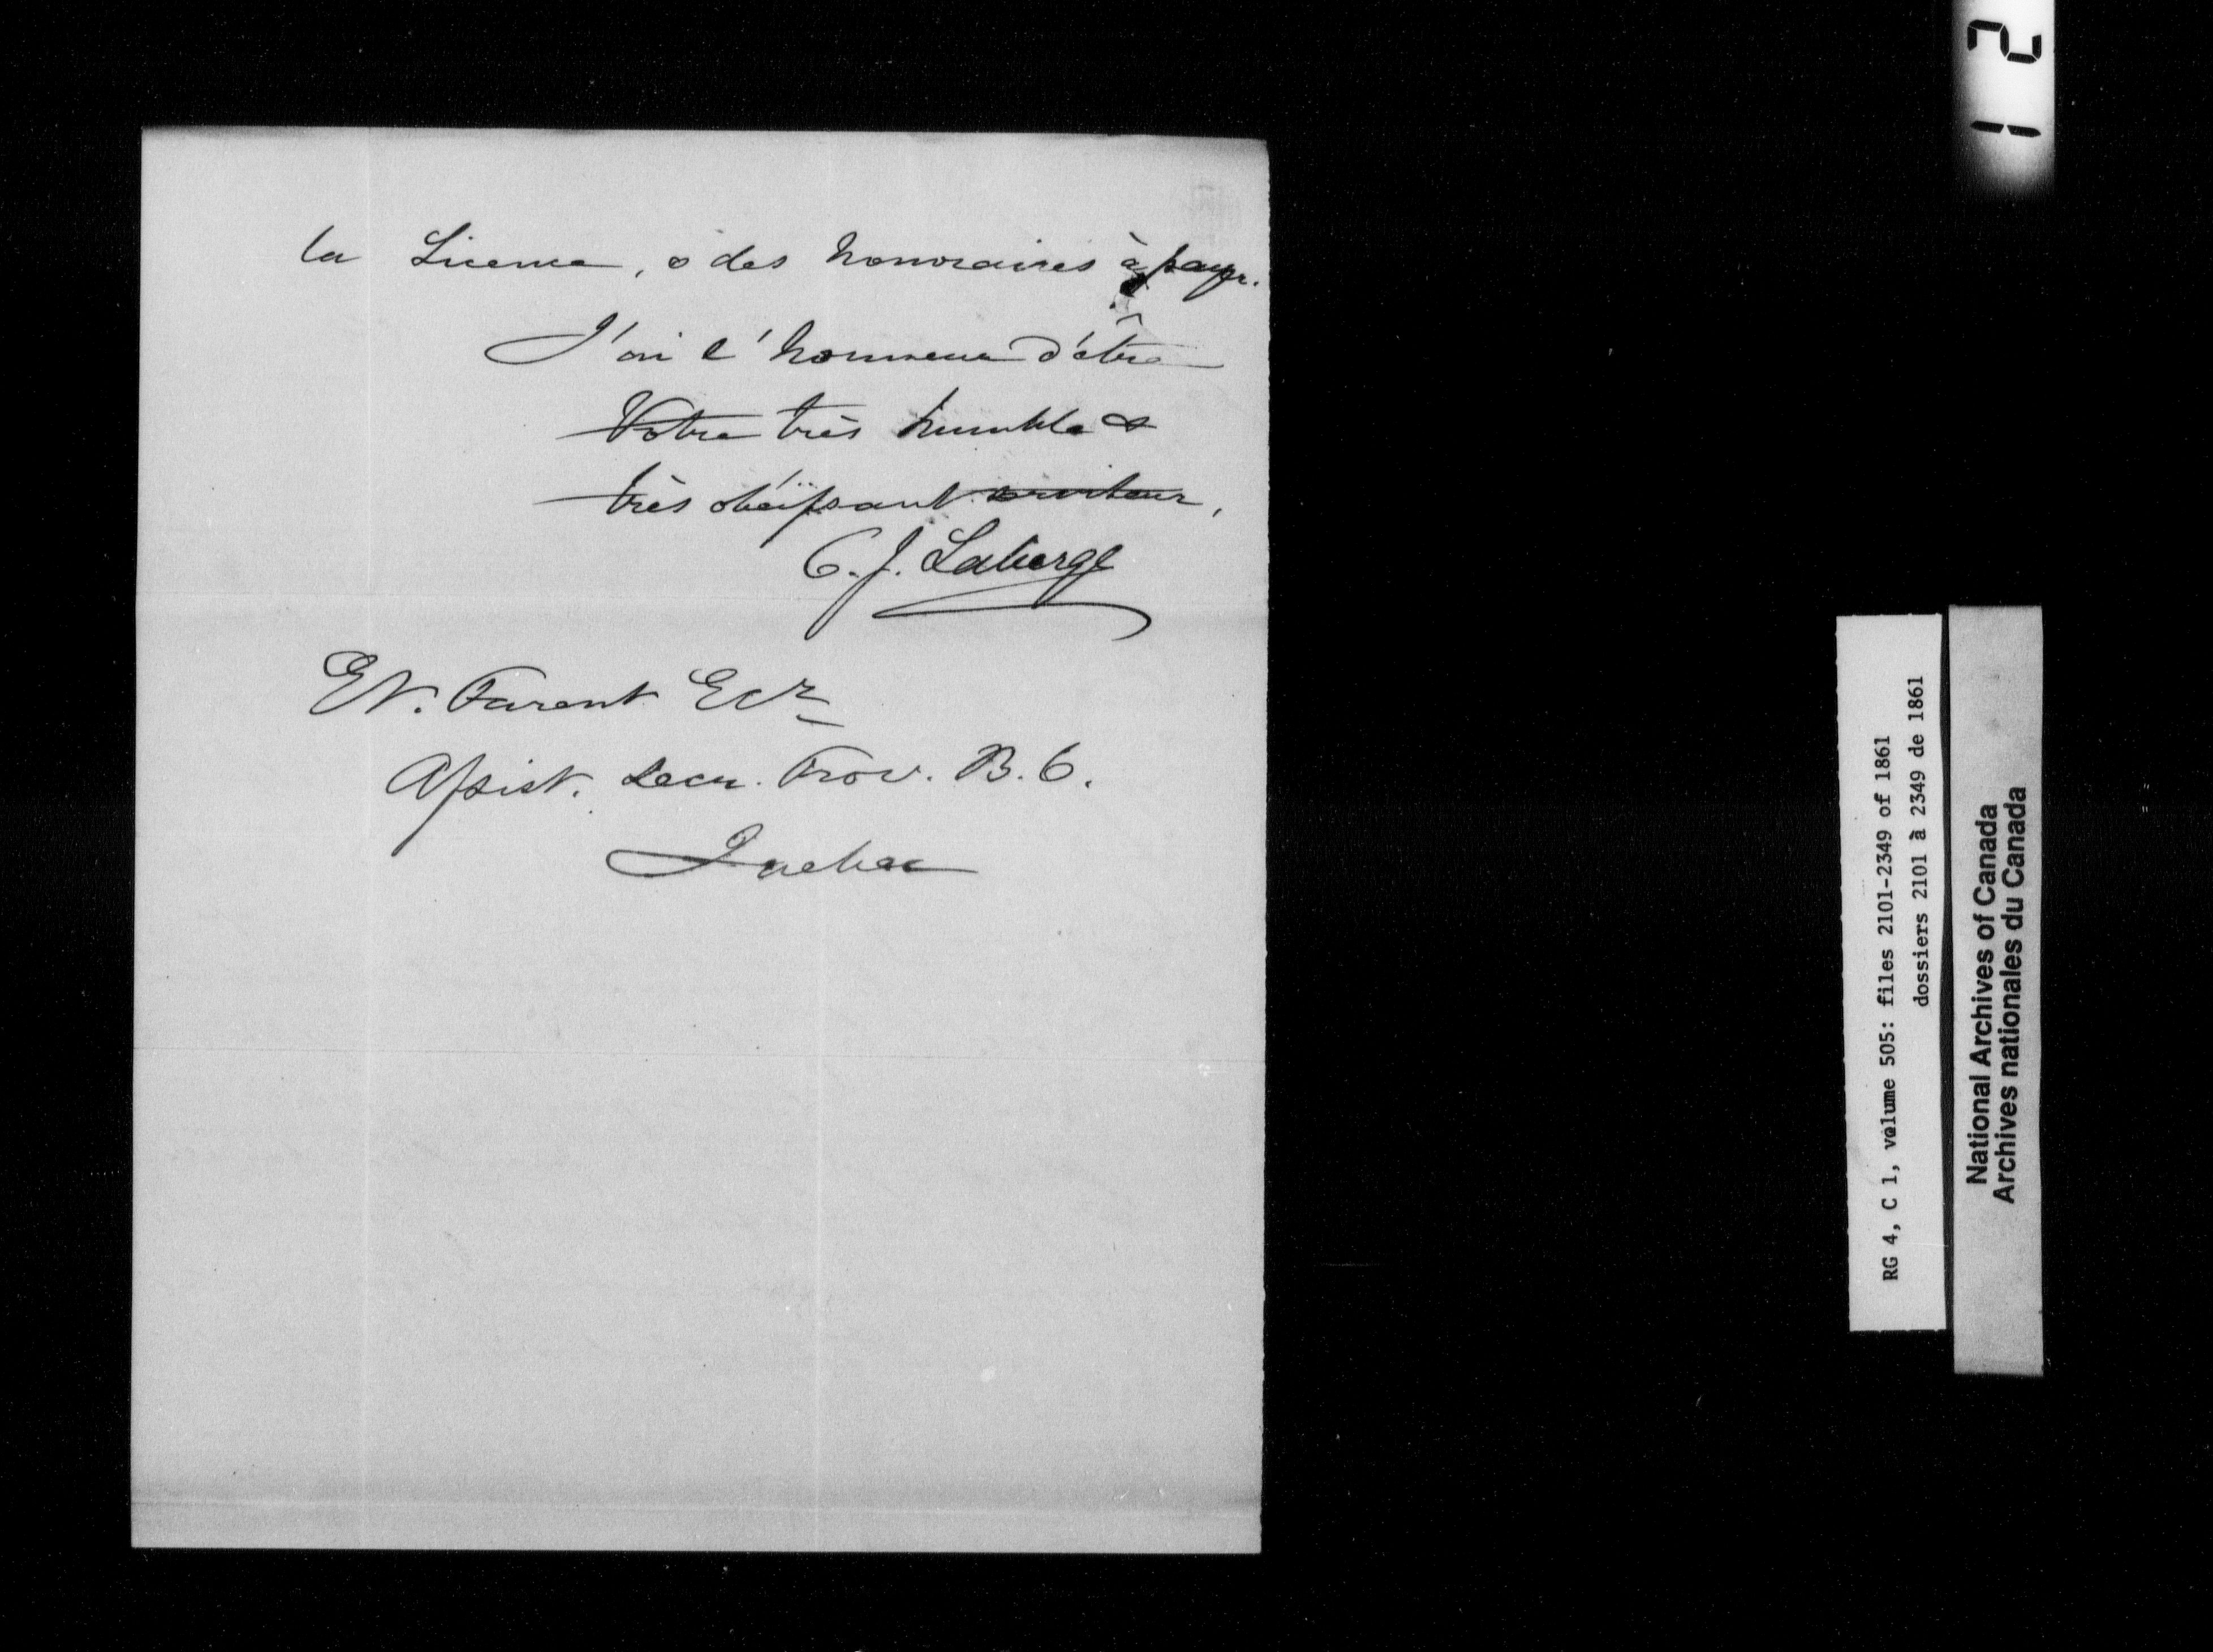 la Licence, & des honoraires à payer.
J'ai l'honneur d'être
Votre très humble &
très obéïssant serviteur,
C. J. Laberge
Et. Parent Ecr
Assist. Secr. Prov. B. C.
Quebec
12
RG 4, C 1, volume 505: files 2101-2349 of 1861
dossiers 2101 à 2349 de 1861
National Archives of Canada
Archives nationales du Canada